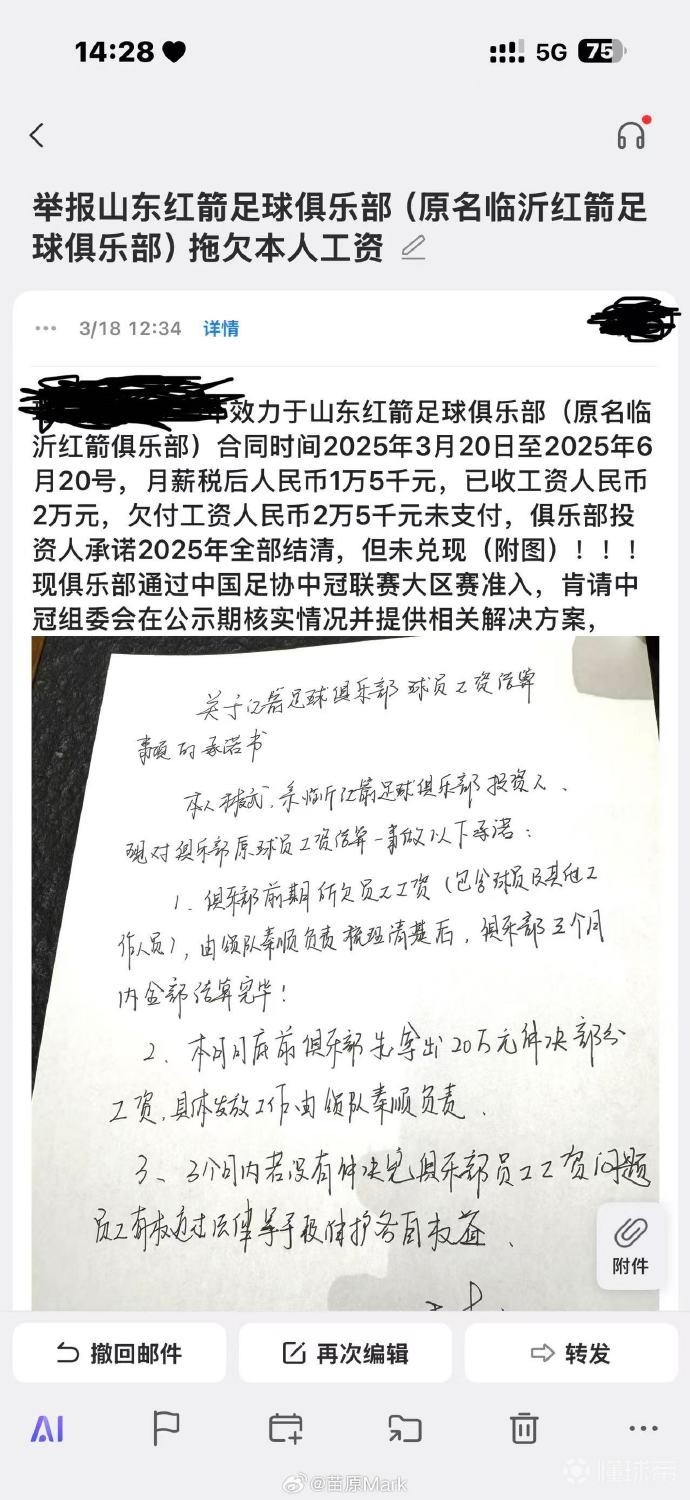 14:28
5G 75
举报山东红箭足球俱乐部（原名临沂红箭足
球俱乐部）拖欠本人工资
3/18 12:34 详情
效力于山东红箭足球俱乐部（原名临
沂红箭俱乐部）合同时间2025年3月20日至2025年6
月20号，月薪税后人民币1万5千元，已收工资人民币
2万元，欠付工资人民币2万5千元未支付，俱乐部投
资人承诺2025年全部结清，但未兑现（附图）！！！
现俱乐部通过中国足协中冠联赛大区赛准入，肯请中
冠组委会在公示期核实情况并提供相关解决方案，
关于红箭足球俱乐部球员工资结算
事项的承诺书
本人，系临沂红箭足球俱乐部投资人、
现对俱乐部原球员工资结算一事做以下承诺：
1、俱乐部前期所欠员工工资（包含球员及其他工
作人员），由领队秦顺负责梳理清楚后，俱乐部三个月
内全部结算完毕！
2、本月月底前俱乐部先拿出20万元解决部分
工资，具体发放工作由领队秦顺负责、
3、3个月内若没有解决完俱乐部员工工资问题
员工有权通过法律等手段维护各自权益、
附件
撤回邮件
再次编辑
转发
AI
@苗原Mark
懂球帝